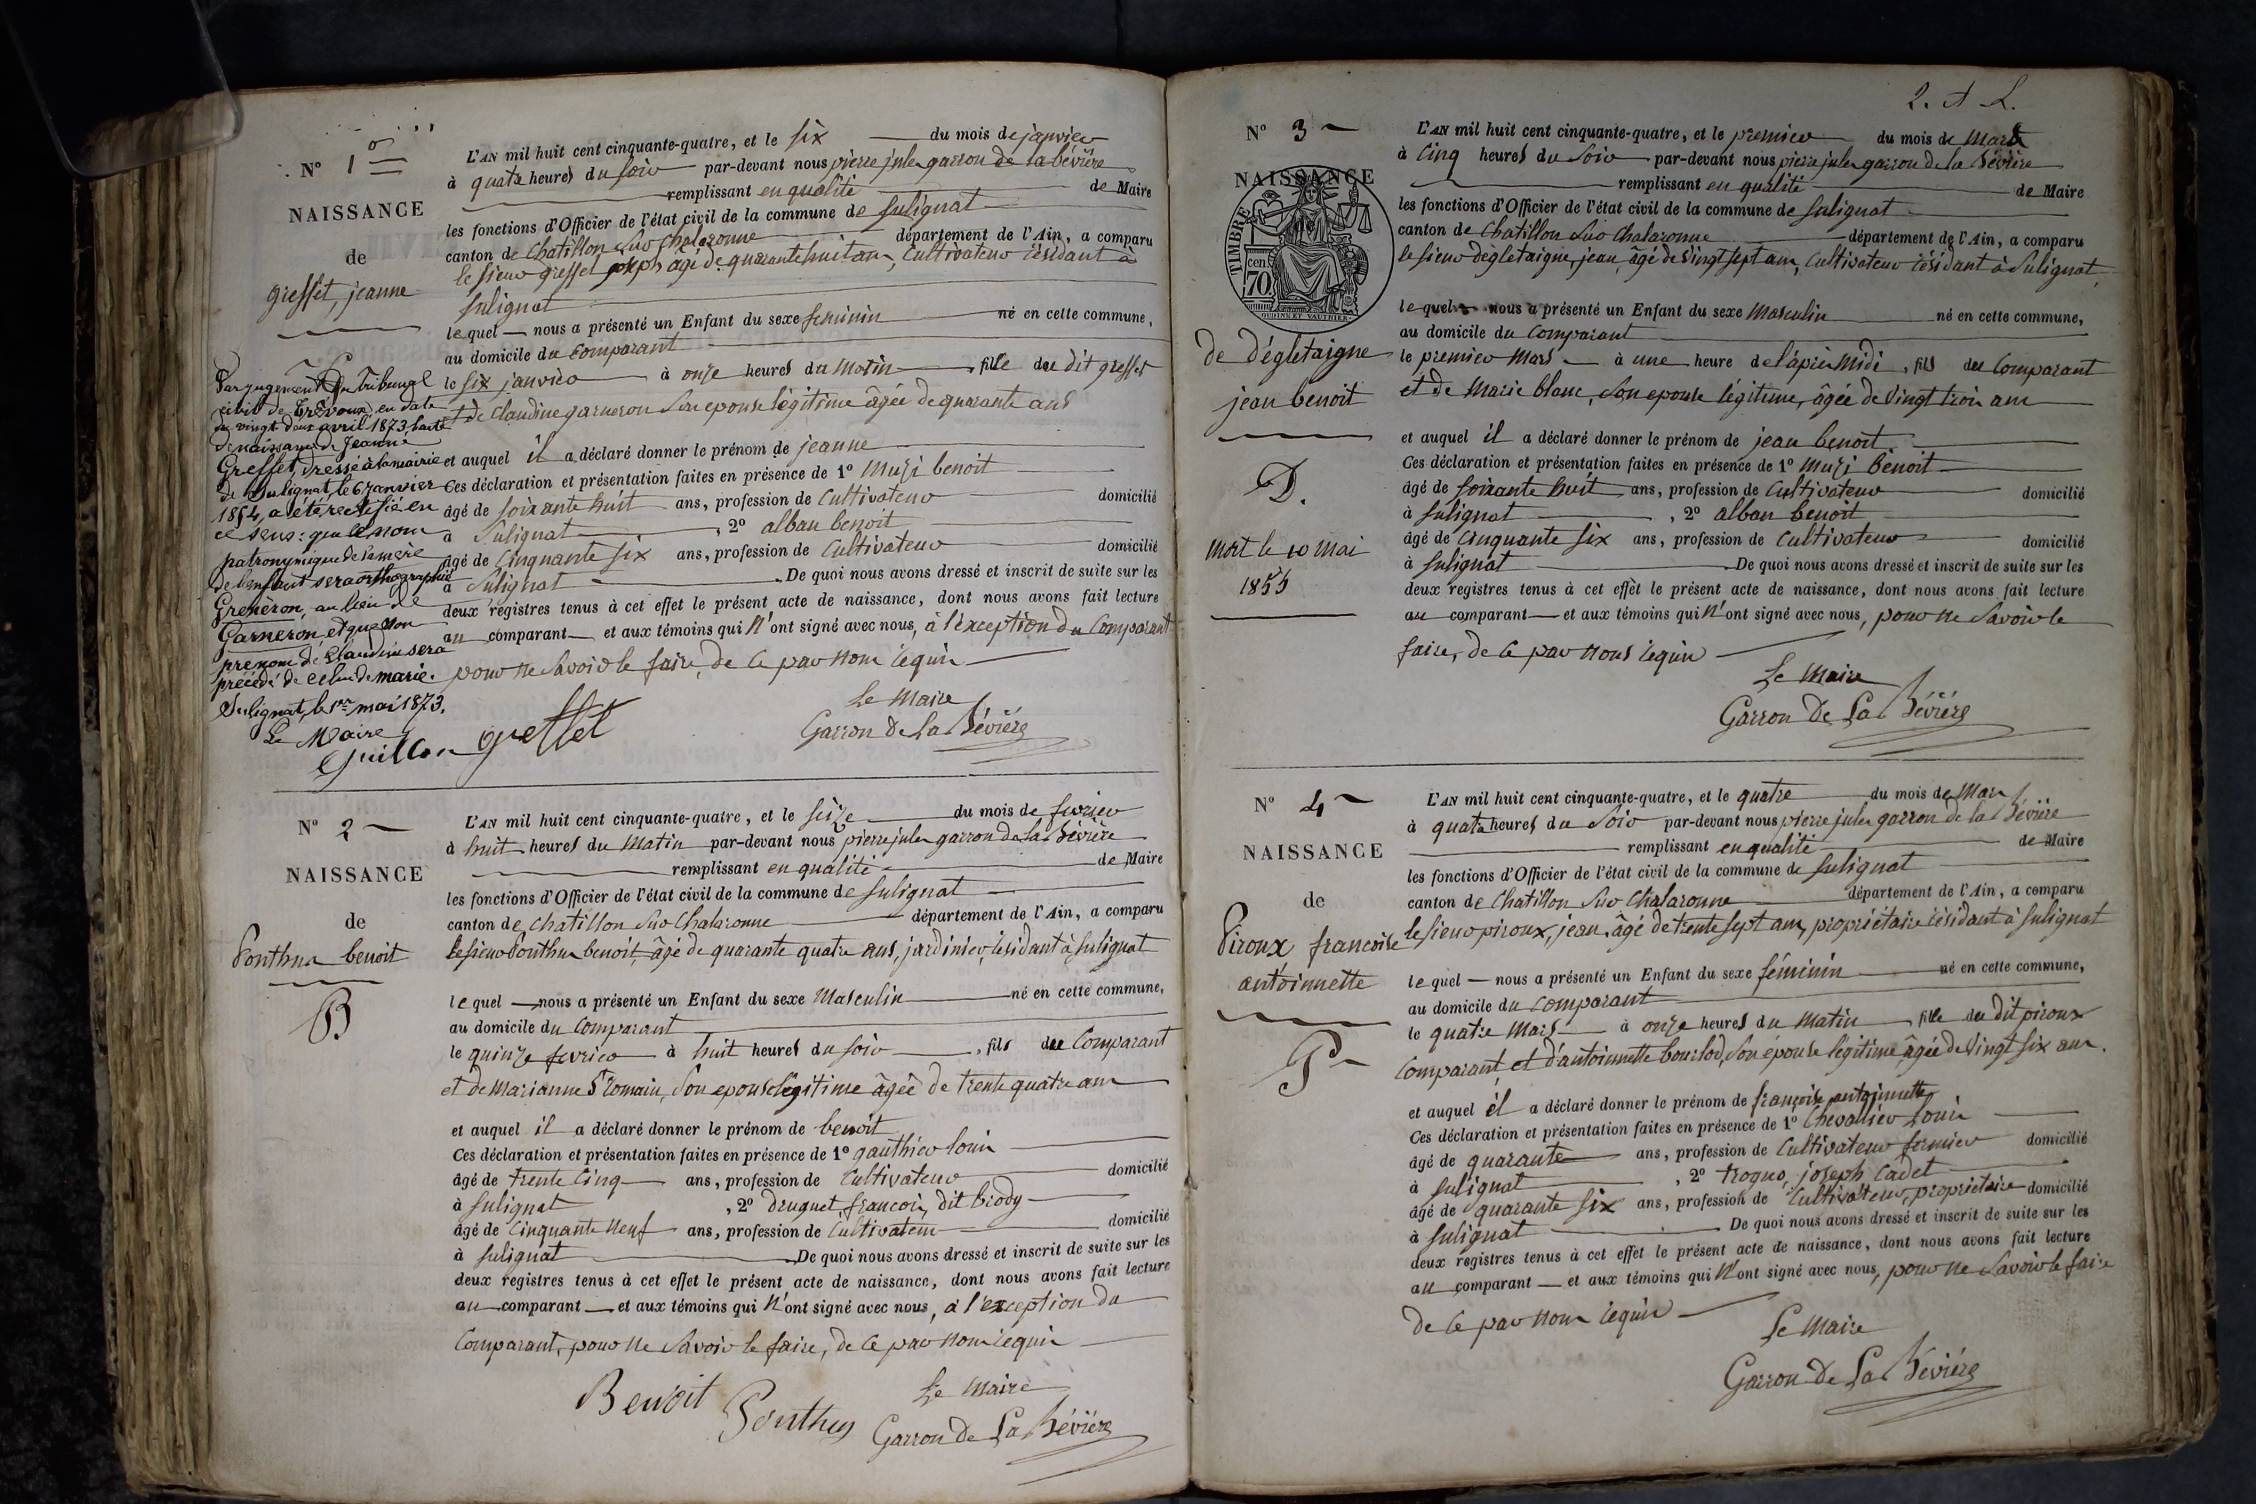 N° 1er
NAISSANCE
de
greffet, jeanne
Par jugement du tribunal
civil de Trévoux, en date
du vingt deux avril 1873, l'acte
de naissance de Jeanne
Greffet, dressé à la mairie
de Sulignat, le 6 janvier
1854, a été rectifié en
ce sens : que le nom
patronymique de la mère
de l'enfant sera orthographié
Greneron, au lieu de
Garneron, et que son
prénom de Claudine sera
précédé de celui de marie.
Sulignat, le 1er mai 1873.
Le Maire
Guillon
L'AN mil huit cent cinquante-quatre, et le six du mois de janvier
à quatre heures du soir par-devant nous pierre jules garron de la bévière
remplissant en qualité de Maire
les fonctions d'Officier de l'état civil de la commune de Sulignat
canton de Chatillon sur Chalaronne département de l'Ain, a comparu
le sieur greffet joseph âgé de quarante huit ans, cultivateur résidant à
Sulignat
lequel nous a présenté un Enfant du sexe feminin né en cette commune,
au domicile du comparant
le six janvier à onze heures du matin, fille du dit greffet
et de claudine garneron son epouse légitime âgée de quarante ans
et auquel il a déclaré donner le prénom de jeanne
Ces déclaration et présentation faites en présence de 1° Muzi benoit
âgé de soixante huit ans, profession de cultivateur domicilié
à Sulignat, 2° alban benoit
âgé de cinquante six ans, profession de cultivateur domicilié
à Sulignat. De quoi nous avons dressé et inscrit de suite sur les
deux registres tenus à cet effet le présent acte de naissance, dont nous avons fait lecture
au comparant et aux témoins qui n'ont signé avec nous, à l'exception du comparant
pour ne savoir le faire, de ce par nous requis
greffet
Le Maire
Garron de La Bévière
N° 2
NAISSANCE
de
Ponthus benoit
B
L'AN mil huit cent cinquante-quatre, et le seize du mois de fevrier
à huit heures du matin par-devant nous pierre jules garron de la bévière
remplissant en qualité de Maire
les fonctions d'Officier de l'état civil de la commune de Sulignat
canton de Chatillon sur Chalaronne département de l'Ain, a comparu
le sieur Ponthus benoit, âgé de quarante quatre ans, jardinier, résidant à Sulignat
lequel nous a présenté un Enfant du sexe Masculin né en cette commune,
au domicile du comparant
le quinze fevrier à huit heures du soir, fils du Comparant
et de Marianne St romain, son epouse légitime âgée de trente quatre ans
et auquel il a déclaré donner le prénom de benoit
Ces déclaration et présentation faites en présence de 1° gauthier louis
âgé de trente cinq ans, profession de cultivateur domicilié
à Sulignat, 2° druguet, françois, dit brody
âgé de cinquante neuf ans, profession de cultivateur domicilié
à Sulignat. De quoi nous avons dressé et inscrit de suite sur les
deux registres tenus à cet effet le présent acte de naissance, dont nous avons fait lecture
au comparant et aux témoins qui n'ont signé avec nous, à l'exception du
comparant, pour ne savoir le faire, de ce par nous requis
Benoit Ponthus
Le Maire
Garron de La Bévière
2. A L.
N° 3
NAISSANCE
TIMBRE
cen. 70
OUDINE ET VAUTHIER
de dégletaigne
jean benoit
D.
Mort le 10 Mai
1855
L'AN mil huit cent cinquante-quatre, et le premier du mois de Mars
à cinq heures du soir par-devant nous pierre jules garron de la bévière
remplissant en qualité de Maire
les fonctions d'Officier de l'état civil de la commune de Sulignat
canton de Chatillon sur Chalaronne département de l'Ain, a comparu
le sieur dégletaigne, jean, âgé de vingt sept ans, cultivateur résidant à Sulignat,
lequel nous a présenté un Enfant du sexe Masculin né en cette commune,
au domicile du Comparant
le premier Mars à une heure de l'après midi, fils du Comparant
et de Marie blanc, son epouse légitime, âgée de vingt trois ans
et auquel il a déclaré donner le prénom de jean benoit
Ces déclaration et présentation faites en présence de 1° Muzi benoit
âgé de soixante huit ans, profession de cultivateur domicilié
à Sulignat, 2° alban benoit
âgé de cinquante six ans, profession de cultivateur domicilié
à Sulignat. De quoi nous avons dressé et inscrit de suite sur les
deux registres tenus à cet effet le présent acte de naissance, dont nous avons fait lecture
au comparant et aux témoins qui n'ont signé avec nous, pour ne savoir le
faire, de ce par nous requis
Le Maire
Garron de La Bévière
N° 4
NAISSANCE
de
Piroux francoise
antoinnette
P
L'AN mil huit cent cinquante-quatre, et le quatre du mois de Mars
à quatre heures du soir par-devant nous pierre jules garron de la bévière
remplissant en qualité de Maire
les fonctions d'Officier de l'état civil de la commune de Sulignat
canton de Chatillon sur Chalaronne département de l'Ain, a comparu
le sieur piroux, jean, âgé de trente sept ans, propriétaire résidant à Sulignat
lequel nous a présenté un Enfant du sexe féminin né en cette commune,
au domicile du comparant
le quatre Mars à onze heures du matin, fille du dit piroux
comparant et d'antoinnette bourlod, son épouse légitime âgée de vingt six ans.
et auquel il a déclaré donner le prénom de françoise antoinnette
Ces déclaration et présentation faites en présence de 1° Chevalier louis
âgé de quarante ans, profession de cultivateur fermier domicilié
à Sulignat, 2° troques, joseph cadet
âgé de quarante six ans, profession de cultivateur, propriétaire domicilié
à Sulignat. De quoi nous avons dressé et inscrit de suite sur les
deux registres tenus à cet effet le présent acte de naissance, dont nous avons fait lecture
au comparant et aux témoins qui n'ont signé avec nous, pour ne savoir le faire
de ce par nous requis
Le Maire
Garron de La Bévière